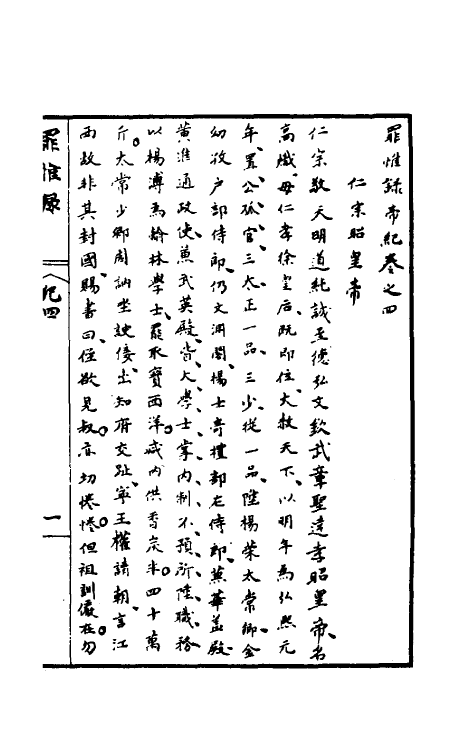 罪惟錄帝紀卷之四
仁宗昭皇帝
仁宗敬天明道純誠至德弘文欽武章聖達孝昭皇帝名
高熾母仁孝徐皇后既即位大赦天下以明年為弘熙元
年置公孤官三太正一品三少從一品陞楊榮太常卿金
幼孜戶部侍郎仍文淵閣楊士奇禮部左侍郎兼華蓋殿
黃淮通政使兼武英殿皆大學士掌內制不預所陞職務
以楊溥為翰林學士罷取寶西洋減內供香炭半四十萬
斤太常少卿周訥坐諛佞出知府交趾寧王權請朝言江
西故非其封國賜書曰侄欲見叔亦切惓惓但祖訓儼在勿
罪惟錄
紀四
一